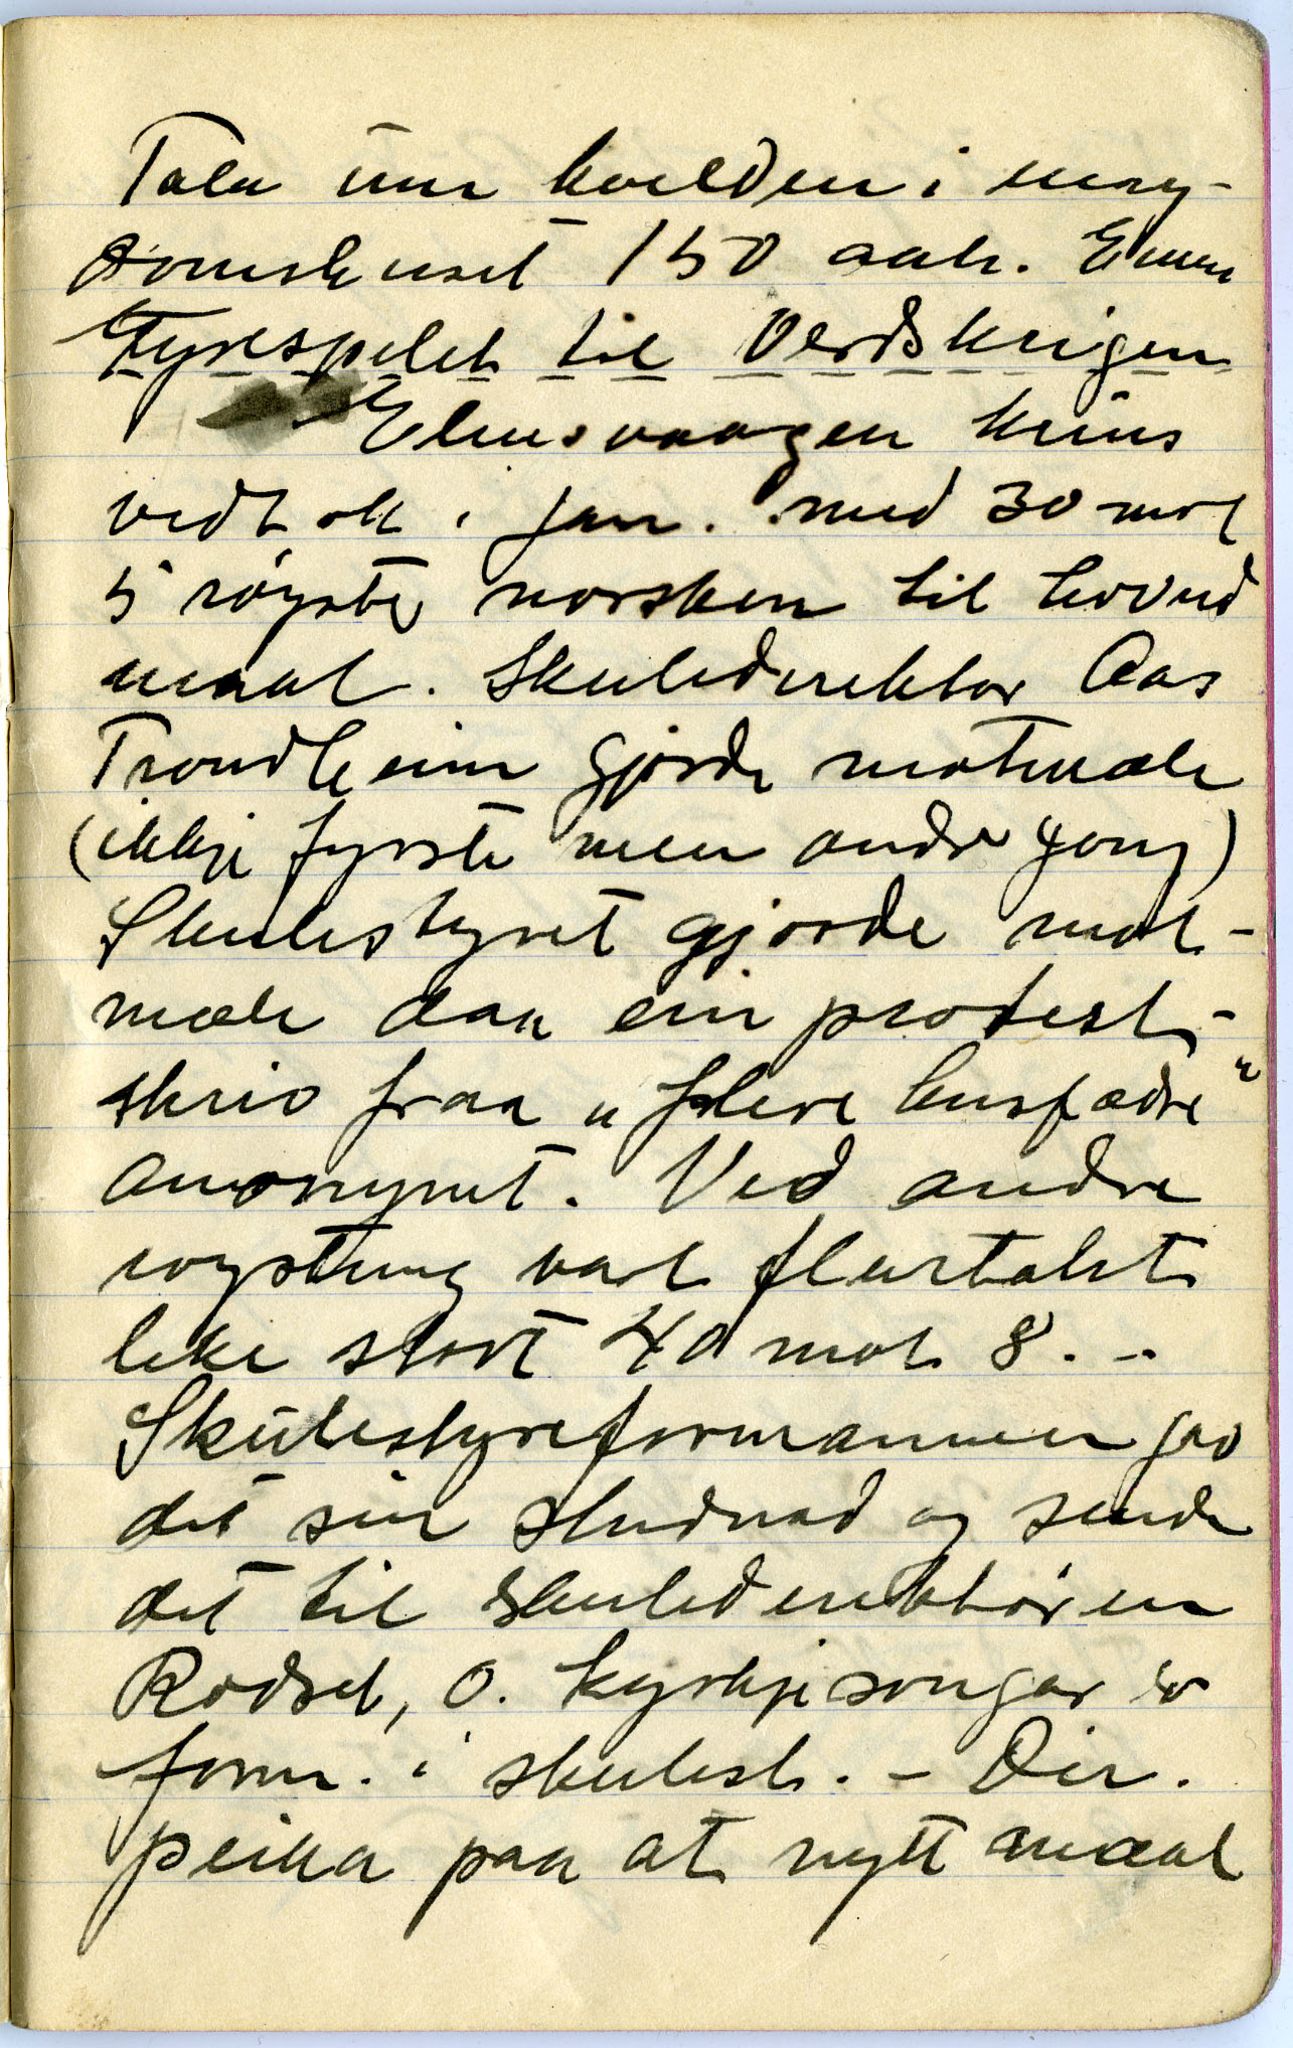 Tala um kvelden i ung-
domshuset 150 aah. Emne
Fyrespelet til Verdskrigen
Elnesvaagen krins
vedtok i jan. med 30 mot
5 røyster norsken til hovud
maal. Skuledirektør Aas
Trondheim gjorde motmæle
(ikkje fyrste men andre gong)
Skulestyret gjorde mot-
mæle daa ein protest-
skriv fraa "flere husfædre"
anonymt. Ved andre
røysting vart fleirtalet
like stort 40 mot 8. -
Skulestyreformannen gav
det sin studnad og sende
det til skuledirektøren
Rødset, O. kyrkjesongar er
form. i skulest. - Dir.
peika paa at nytt maal